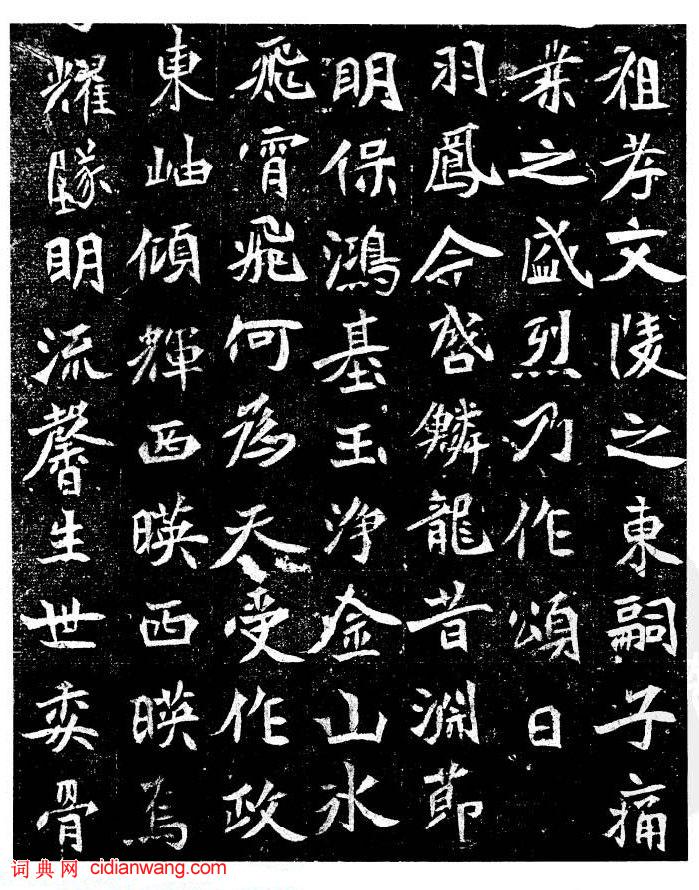 祖孝文陵之東嗣子痛
業之盛烈乃作頌曰
羽鳳今啓鱗龍昔淵節
明保鴻基玉淨金山水
飛霄飛何為天受作政
東岫傾輝西暎西暎焉
耀墜明流馨生世委骨
词典网 cidianwang.com